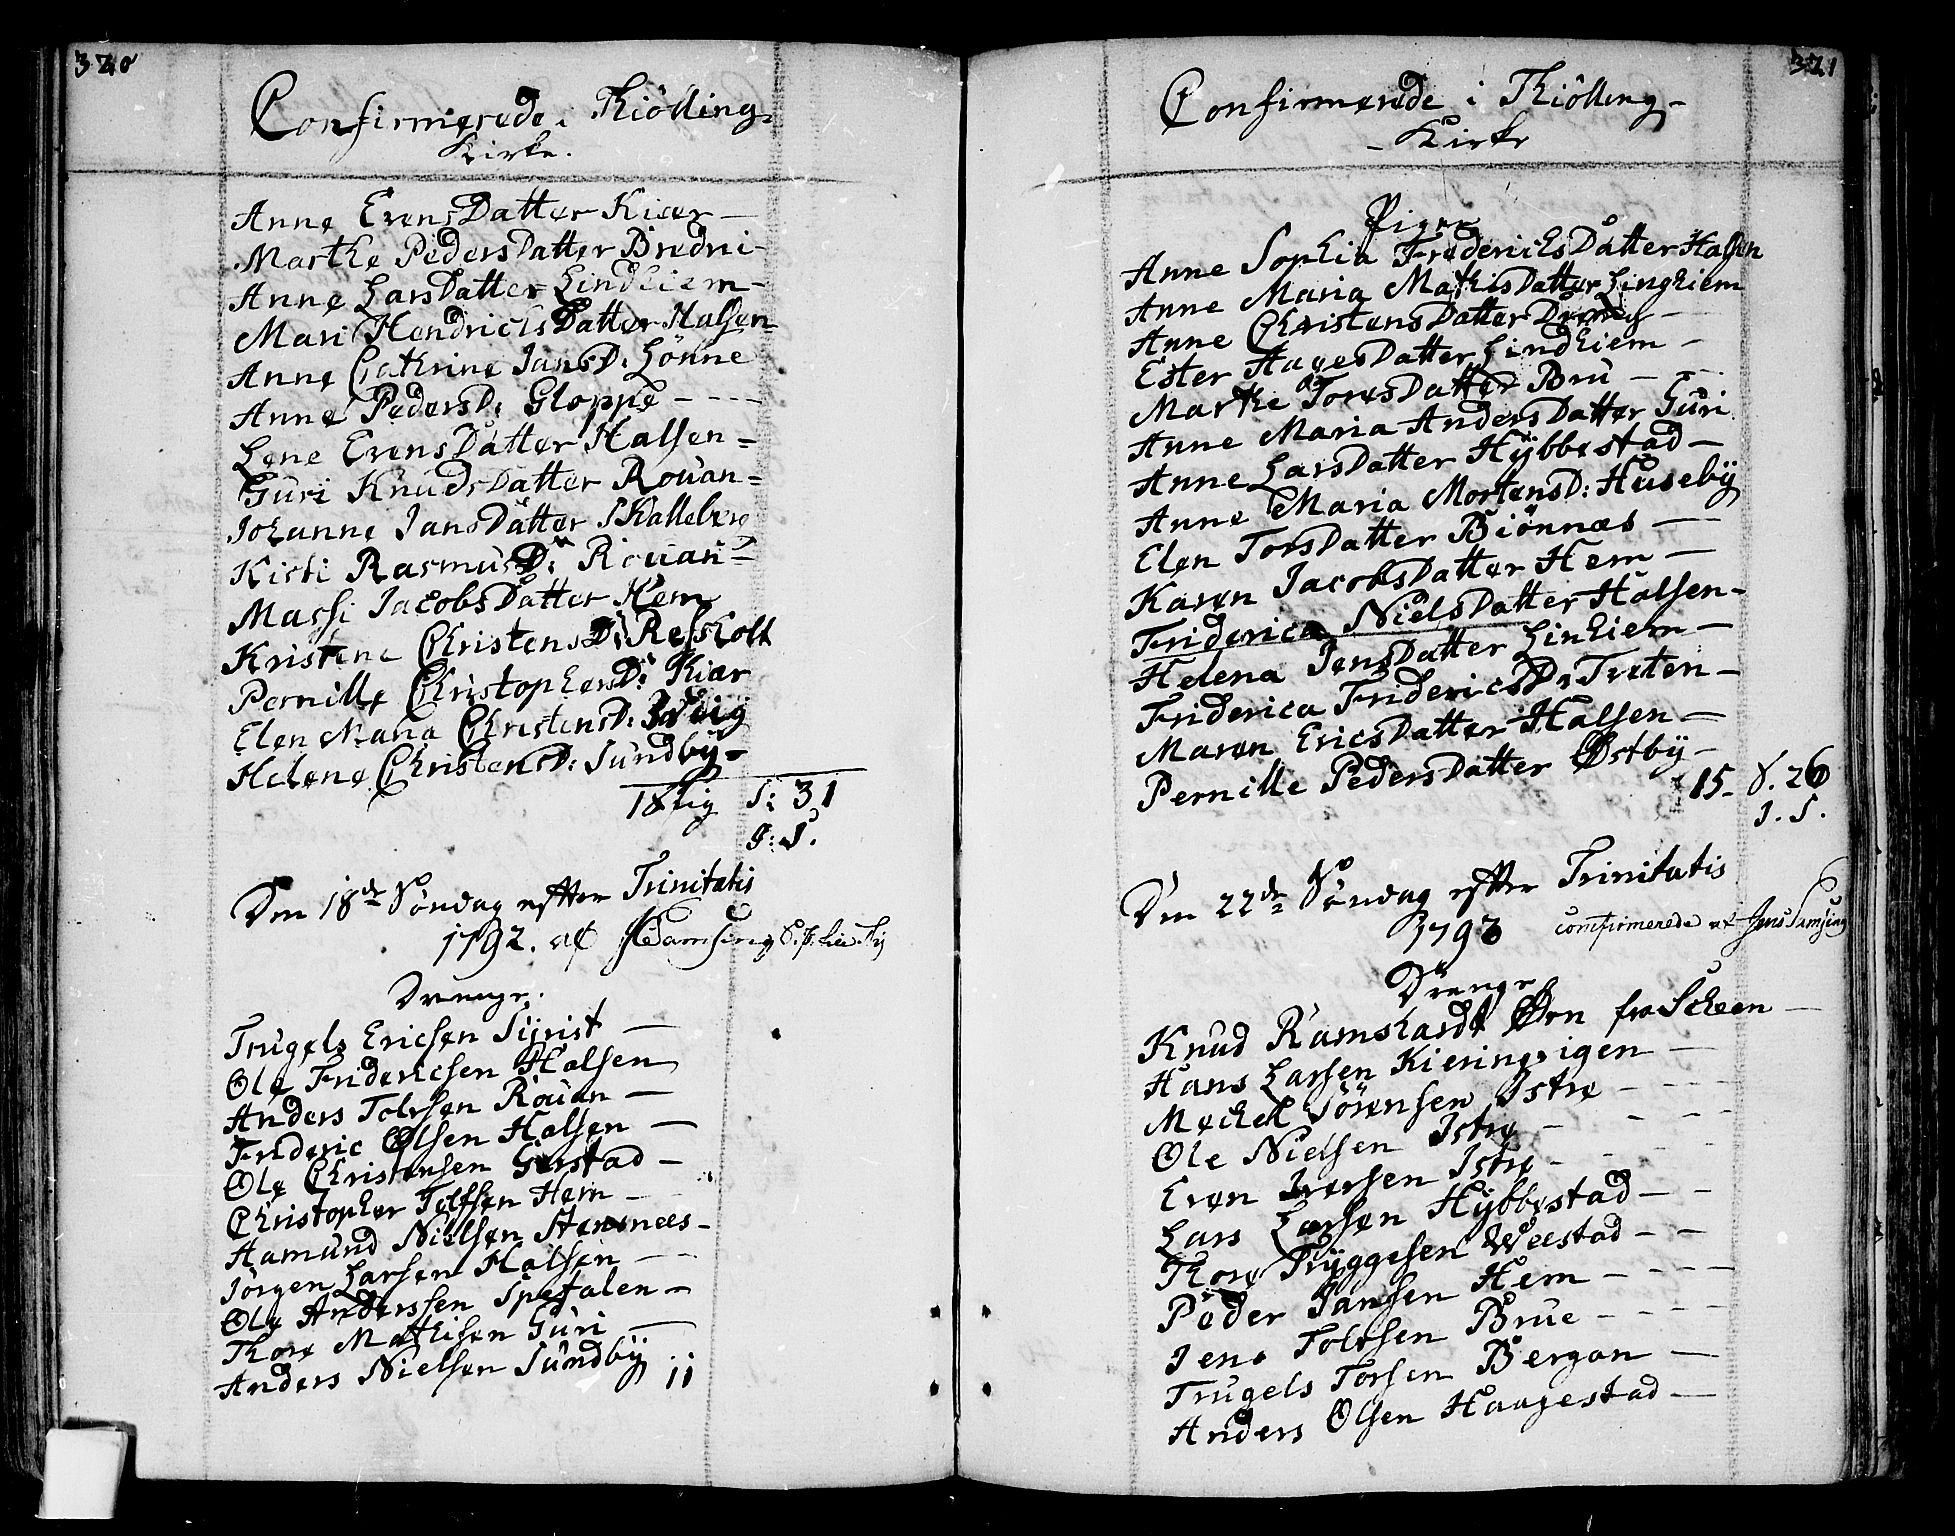 320
Confirmerede i Thiölling
Kirke.
Anne ErensDatter Kiær
Marthe PedersDatter Bredvi
Anne LarsDatter Lindhiem
Mari HendrichsDatter Halsen
Anne Cathrine JansD: Lönne
Anne PedersD: Gloppe
Lene ErensDatter Halsen
Guri KnudsDatter Rouan
Johanne JansDatter Skalleberg
Kisti RasmusD: Rouan
Massi JacobsDatter Hem
Kristene ChristensD:
Pernille ChristophersD: Kiær
Elen Maria ChristensD:
Helene ChristensD: Sundbÿ
18 S: 31
J: S.
Den 18de Söndag efter Trinitatis
1792. af
Drenge.
Trugels Ericsen
Ole Fridericsen Halsen
Anders Tolesen Rouan
Frideric Olsen Halsen
Ole Christensen Gierstad
Christopher Tolfsen Hem
Hamund Nielsen
Jörgen Larsen Halsen
Ole Anderssen Spetalen
Thore Mathisen Guri
Anders Nielsen Sundbÿ
11
321
Confirmerede i Thiölling
Kirke
Piger
Anne Sophia FrederichsDatter Halsen
Anne Maria MathisDatter Linghiem
Anne ChristensDatter
Ester AagesDatter Lindhiem
Marthe ToresDatter Bru
Anne Maria AndersDatter Guri
Anne LarsDatter Hÿbbestad
Anne Maria MortensD: Husebÿ
Elen TorsDatter Biönnæs
Karen JacobsDatter Hem
Friderica NielsDatter Halsen
Helena JensDatter Linhiem
Friderica FridericsD: Treten
Maren EricsDatter Halsen
Pernille PedersDatter Østbÿ
15 S. 26
J. S.
Den 22de Söndag efter Trinitatis
1793 confirmerede af Jens Samsing
Drenge
Knud Ramshardt Örn fra Scheen
Hans Larsen Kieringvigen
Mechel Sörensen Istre
Ole Nielsen Istre
Eren Iversen Istre
Lars Larsen Hÿbbestad
Thore Trÿggesen Weestad
Peder Jansen Hem
Jens Tolfsen Brue
Trugels Torsen Bergan
Anders Olsen Haagestad